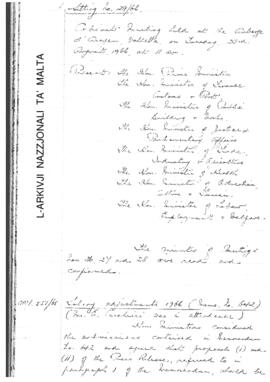 Sitting No. 29/66.
Cabinet Meeting held at the Auberge
d'Aragon Valletta on Tuesday 23rd
August 1966 at 11 am.
Present: The Hon. Prime Minister
The Hon. Minister of Finance
Customs & Port
The Hon. Minister of Public
Building & Works
The Hon. Minister of Justice &
Parliamentary Affairs
The Hon. Minister of Trade,
Industry & Agriculture
The Hon. Minister of Health
The Hon. Minister of Education,
Culture & Tourism
The Hon. Minister of Labour
Employment & Welfare.
The minutes of Meetings
Nos 27 and 28 were read and
confirmed.
Salary adjustments 1966 (Memo. No.
in attendance)
Ministers considered
the submissions contained in Memorandum
No. and agreed that proposals (I) and
(II) of the Press Release, referred to in
paragraph 1 of the Memorandum, should be
L-ARKIVJI NAZZJONALI TA' MALTA